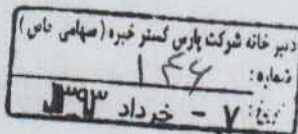 دبیر خانه شرکت پارس گستر خبره (سهامی خاص)
شماره: ۱۴۶
تاریخ: ۷ - خرداد ۱۳۹۳